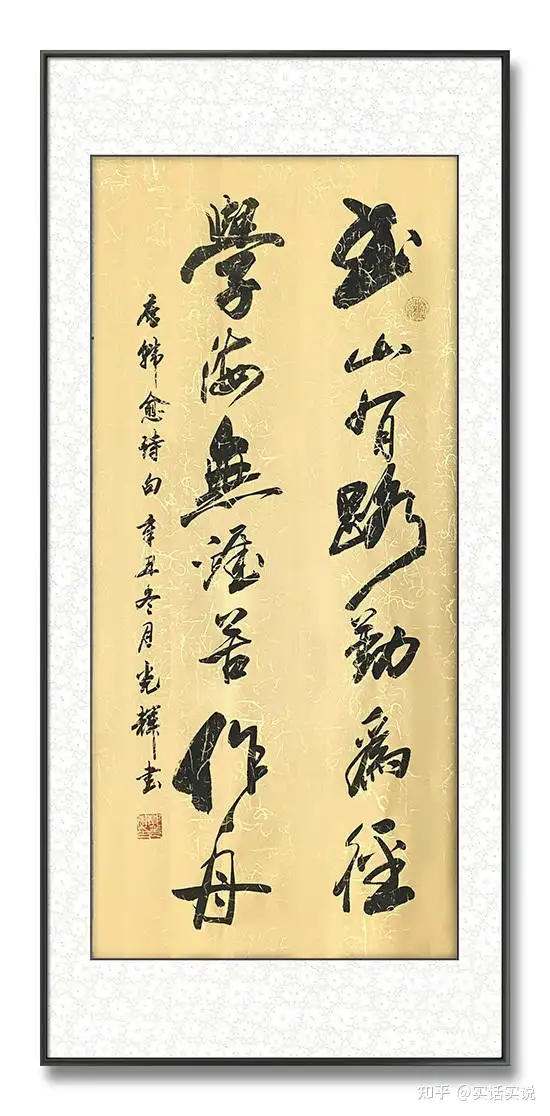 書山有路勤為徑
學海無涯苦作舟
韓愈詩句 辛丑冬月光輝書
知乎 @实话实说